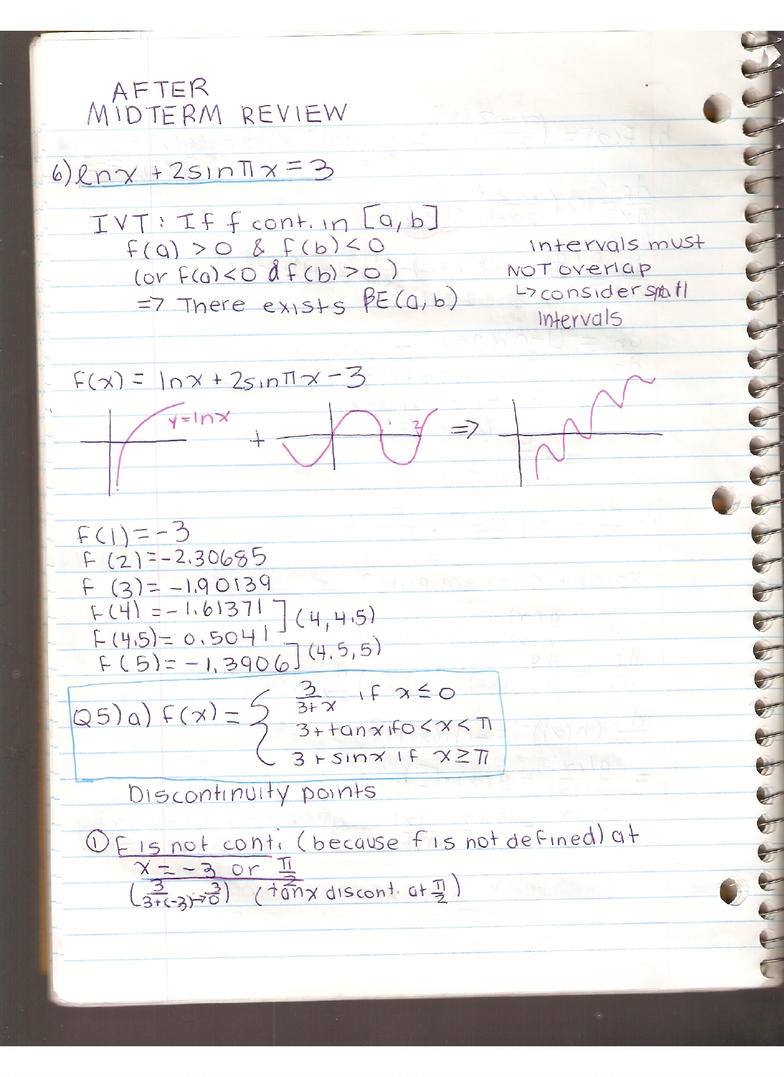 AFTER
MIDTERM REVIEW
6) lnx + 2sinπx = 3
IVT: If f cont. in [a,b]
f(a) > 0 & f(b) < 0
(or f(a)<0 & f(b) > 0)
=> There exists βE(a,b)
Intervals must
NOT overlap
↳ consider small
Intervals
f(x) = lnx + 2sinπx - 3
y=lnx
+
1 2
=>
f(1) = -3
f(2) = -2.30685
f(3) = -1.90139
f(4) = -1.61371 ] (4, 4.5)
f(4.5) = 0.5041
f(5) = -1.3906 ] (4.5, 5)
Q5) a) f(x) = { 3/(3+x) if x ≤ 0
3+tanx if 0<x<π
3+sinx if x≥π
Discontinuity points
① F is not conti, (because f is not defined) at
x = -3 or π/2
(3/(3+(-3)) → 3/0) (tanx discont. at π/2)